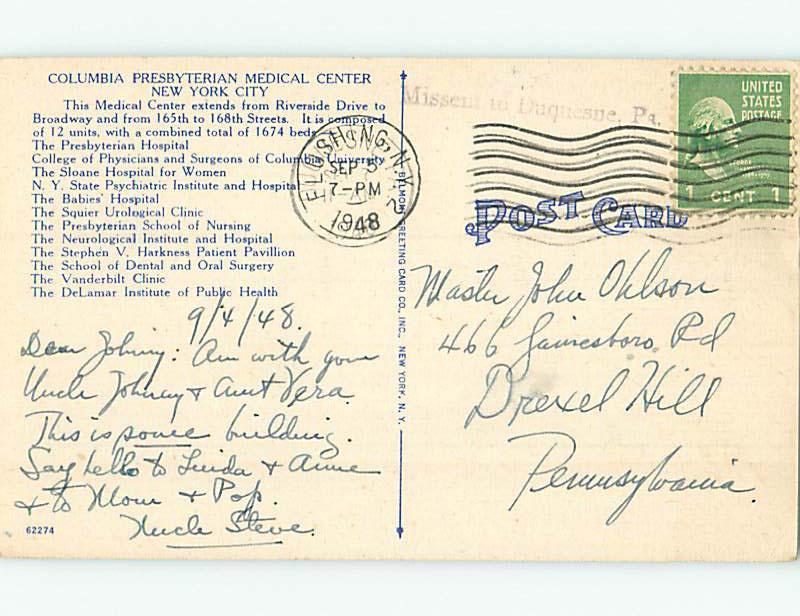 COLUMBIA PRESBYTERIAN MEDICAL CENTER
NEW YORK CITY
This Medical Center extends from Riverside Drive to
Broadway and from 165th to 168th Streets. It is composed
of 12 units, with a combined total of 1674 beds.
The Presbyterian Hospital
College of Physicians and Surgeons of Columbia University
The Sloane Hospital for Women
N. Y. State Psychiatric Institute and Hospital
The Babies' Hospital
The Squier Urological Clinic
The Presbyterian School of Nursing
The Neurological Institute and Hospital
The Stephen V. Harkness Patient Pavillion
The School of Dental and Oral Surgery
The Vanderbilt Clinic
The DeLamar Institute of Public Health
9/4/48.
Dear Johnny: Am with your
Uncle Johnny + Aunt Vera.
This is some building.
Say hello to Linda + Anne
+ to Mom + Pop.
Uncle Steve.
62274
BELMONT GREETING CARD CO., INC., NEW YORK, N. Y.
FLUSHING, N.Y.
SEP 5
7-PM
1948
Missent to Duquesne, Pa.
UNITED
STATES
POSTAGE
1 CENT 1
POST CARD
Master John Ohlson
466 Rd
Drexel Hill
Pennsylvania.